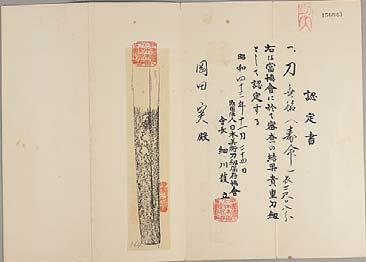 認定書
一、刀 無銘(壽命) 長二尺
右は當協會に於て審査の結果貴重刀劔
として認定する
昭和四十二年十一月二十五日
財團法人日本美術刀劔保存協會
會長 細川護立
岡田 実 殿